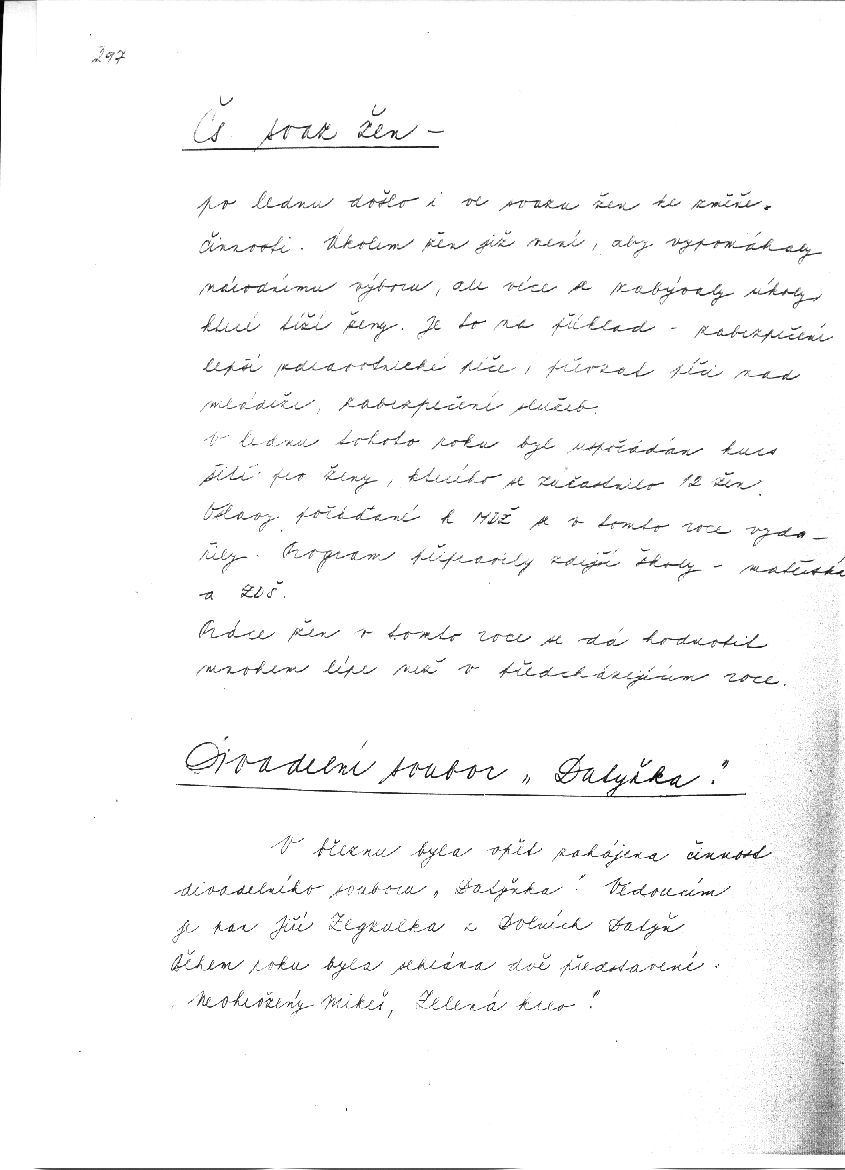 297
Čs. svaz žen –
po lednu došlo i ve svazu žen ke změně.
činnosti. Úkolem žen již není, aby vypomáhaly
národnímu výboru, ale více se zabývaly úkoly,
které tíží ženy. Je to na příklad – zabezpečení
lepší zdravotnické péče, převzat péči nad
mládeži, zabezpečení služeb.
V lednu tohoto roku byl uspořádán kurs
šití pro ženy, kterého se zúčastnilo 12 žen.
Oslavy pořádané k MDŽ se v tomto roce vyda–
řily. Program připravily zdejší školy – mateřská
a ZDŠ.
Práce žen v tomto roce se dá hodnotit
mnohem lépe než v předcházejícím roce.
Divadelní soubor „Datyňka".
V březnu byla opět zahájena činnost
divadelního souboru „Datyňka". Vedoucím
je pan Jiří Zegzulka z Dolních Datyň
Během roku byla sehrána dvě představení.
„Neohrožený Mikeš, Zelená krev".